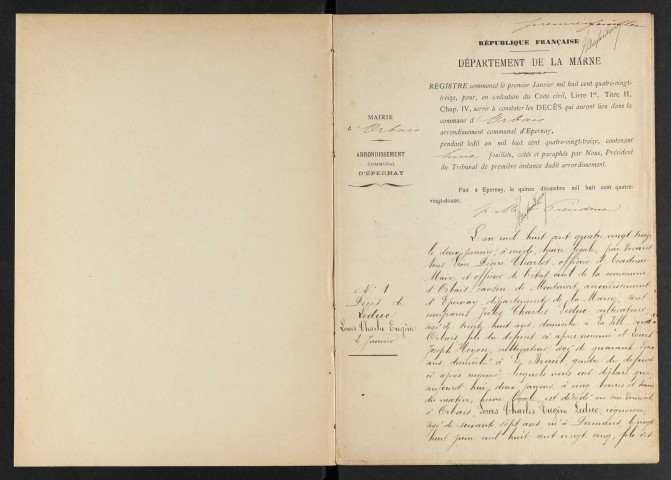 RÉPUBLIQUE FRANÇAISE
DÉPARTEMENT DE LA MARNE
REGISTRE commencé le premier Janvier mil huit cent quatre-vingt-
treize, pour, en exécution du Code civil, Livre Ier, Titre II,
Chap. IV, servir à constater les DÉCÈS qui auront lieu dans la
commune d'Orbais
arrondissement communal d'Epernay,
pendant ledit an mil huit cent quatre-vingt-treize, contenant
feuillets, cotés et paraphés par Nous, Président
du Tribunal de première instance dudit arrondissement.
Fait à Epernay, le quinze décembre mil huit cent quatre-
vingt-douze.
MAIRIE
d'Orbais
ARRONDISSEMENT
COMMUNAL
D'EPERNAY
N° 1
Décès de
Leduc
Louis Charles Eugène
2 Janvier
L'an mil huit cent quatre vingt treize
le deux janvier, à midi, heure légale, par devant
Nous, Léon Désiré Charlot, officier d'Académie
Maire et officier de l'état civil de la commune
d'Orbais canton de Montmort, arrondissement
d'Epernay, département de la Marne, sont
comparus Jules Charles Leduc cultivateur
âgé de trente huit ans, domicilié à La
Orbais fils du défunt ci après nommé et Louis
Joseph cultivateur âgé de quarante
ans, domicilié à Le Breuil, gendre du défunt
ci après nommé, lesquels nous ont déclaré que
aujourd'hui, deux janvier, à cinq heures et demie
du matin, heure légale, est décédé en son domicile
à Orbais, Louis Charles Eugène Leduc, vigneron
âgé de soixante sept ans, né à Dormans, le vingt
huit juin mil huit cent vingt cinq, fils de